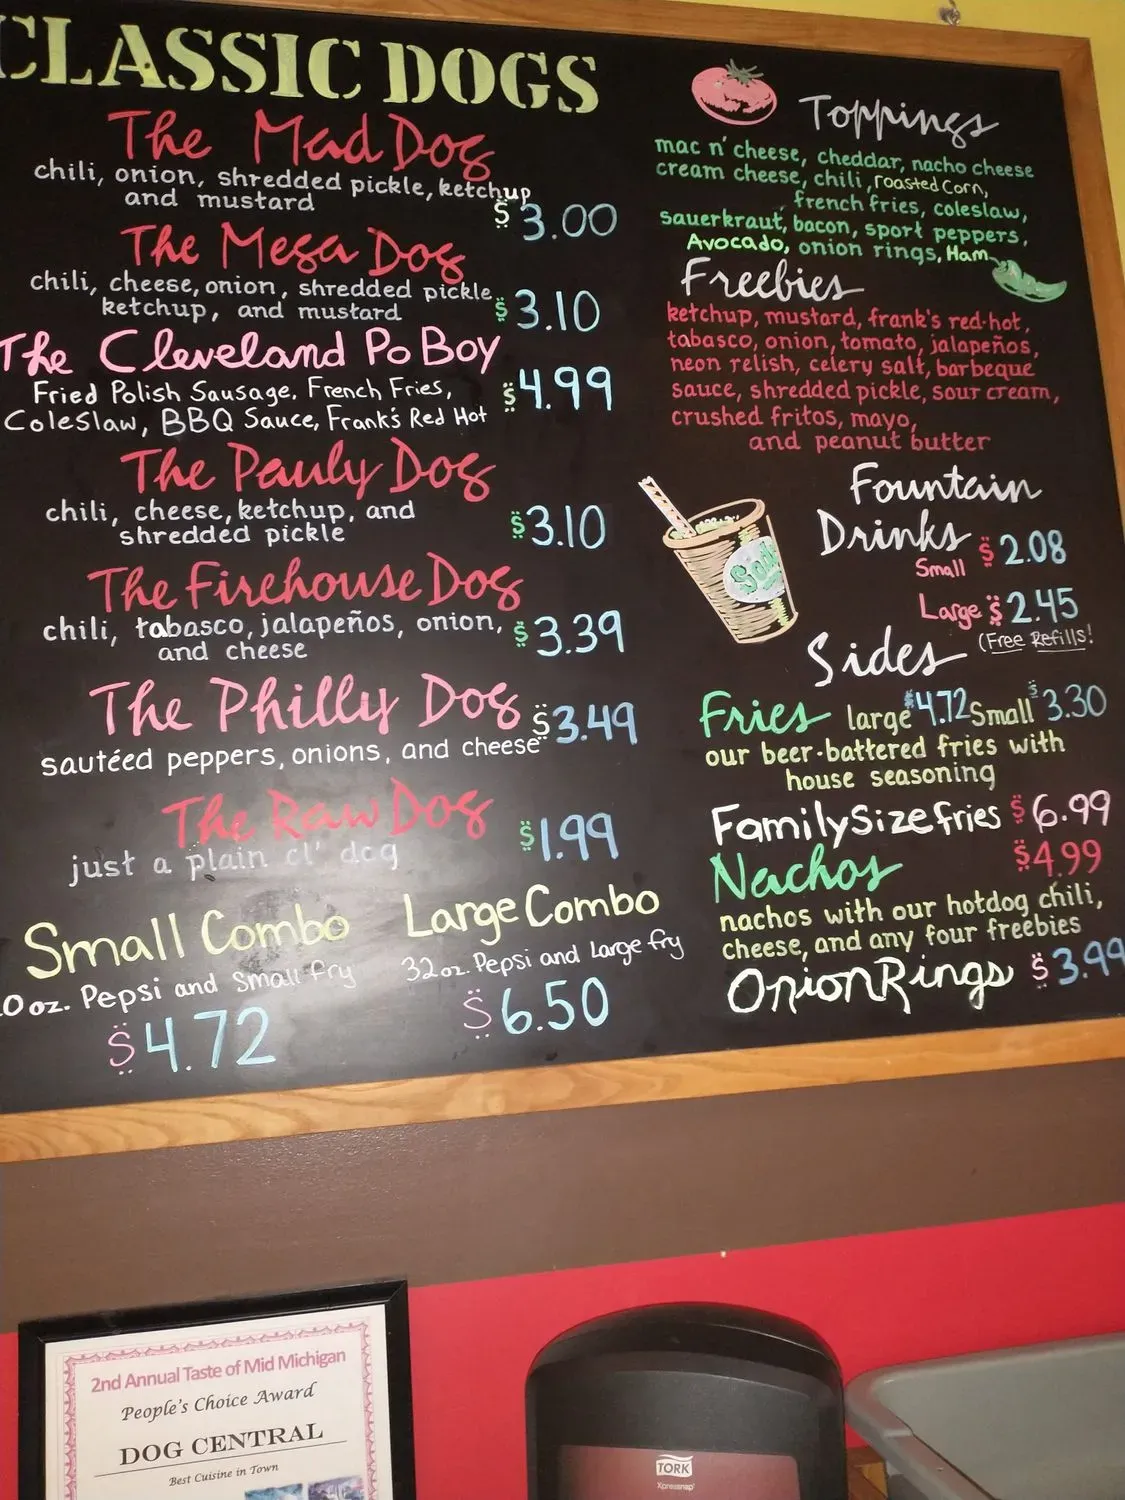 CLASSIC DOGS
The Mad Dog
chili, onion, shredded pickle, ketchup
and mustard
$3.00
The Mega Dog
chili, cheese, onion, shredded pickle
ketchup, and mustard
$3.10
The Cleveland Po Boy
Fried Polish Sausage, French Fries,
ColeSlaw, BBQ Sauce, Frank's Red Hot
$4.99
The Pauly Dog
chili, cheese, ketchup, and
shredded pickle
$3.10
The Firehouse Dog
chili, tabasco, jalapeños, onion,
and cheese
$3.39
The Philly Dog
$3.49
sautéed peppers, onions, and cheese
The Raw Dog
$1.99
just a plain ol' dog
Small Combo
0 oz. Pepsi and Small fry
$4.72
Large Combo
32 oz. Pepsi and Large fry
$6.50
Toppings
mac n' cheese, cheddar, nacho cheese
cream cheese, chili, roasted Corn,
french fries, coleslaw,
sauerkraut, bacon, sport peppers,
Avocado, onion rings, Ham
Freebies
ketchup, mustard, frank's red-hot,
tabasco, onion, tomato, jalapeños,
neon relish, celery salt, barbeque
sauce, shredded pickle, sour cream,
crushed fritos, mayo,
and peanut butter
Fountain
Drinks
Small $2.08
Large $2.45
(Free Refills!
Sides
Fries large $4.72 Small $3.30
our beer-battered fries with
house seasoning
Family Size fries $6.99
Nachos $4.99
nachos with our hotdog chili,
cheese, and any four freebies
Onion Rings $3.99
2nd Annual Taste of Mid Michigan
People's Choice Award
DOG CENTRAL
Best Cuisine in Town
TORK
Xpressnap